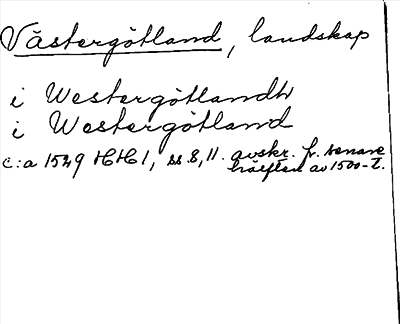 Västergötland, landskap
i Westergötlandh
i Westergötland
c:a 1529 HH 1, ss 8, 11. avskr. fr. senare
hälften av 1500-t.